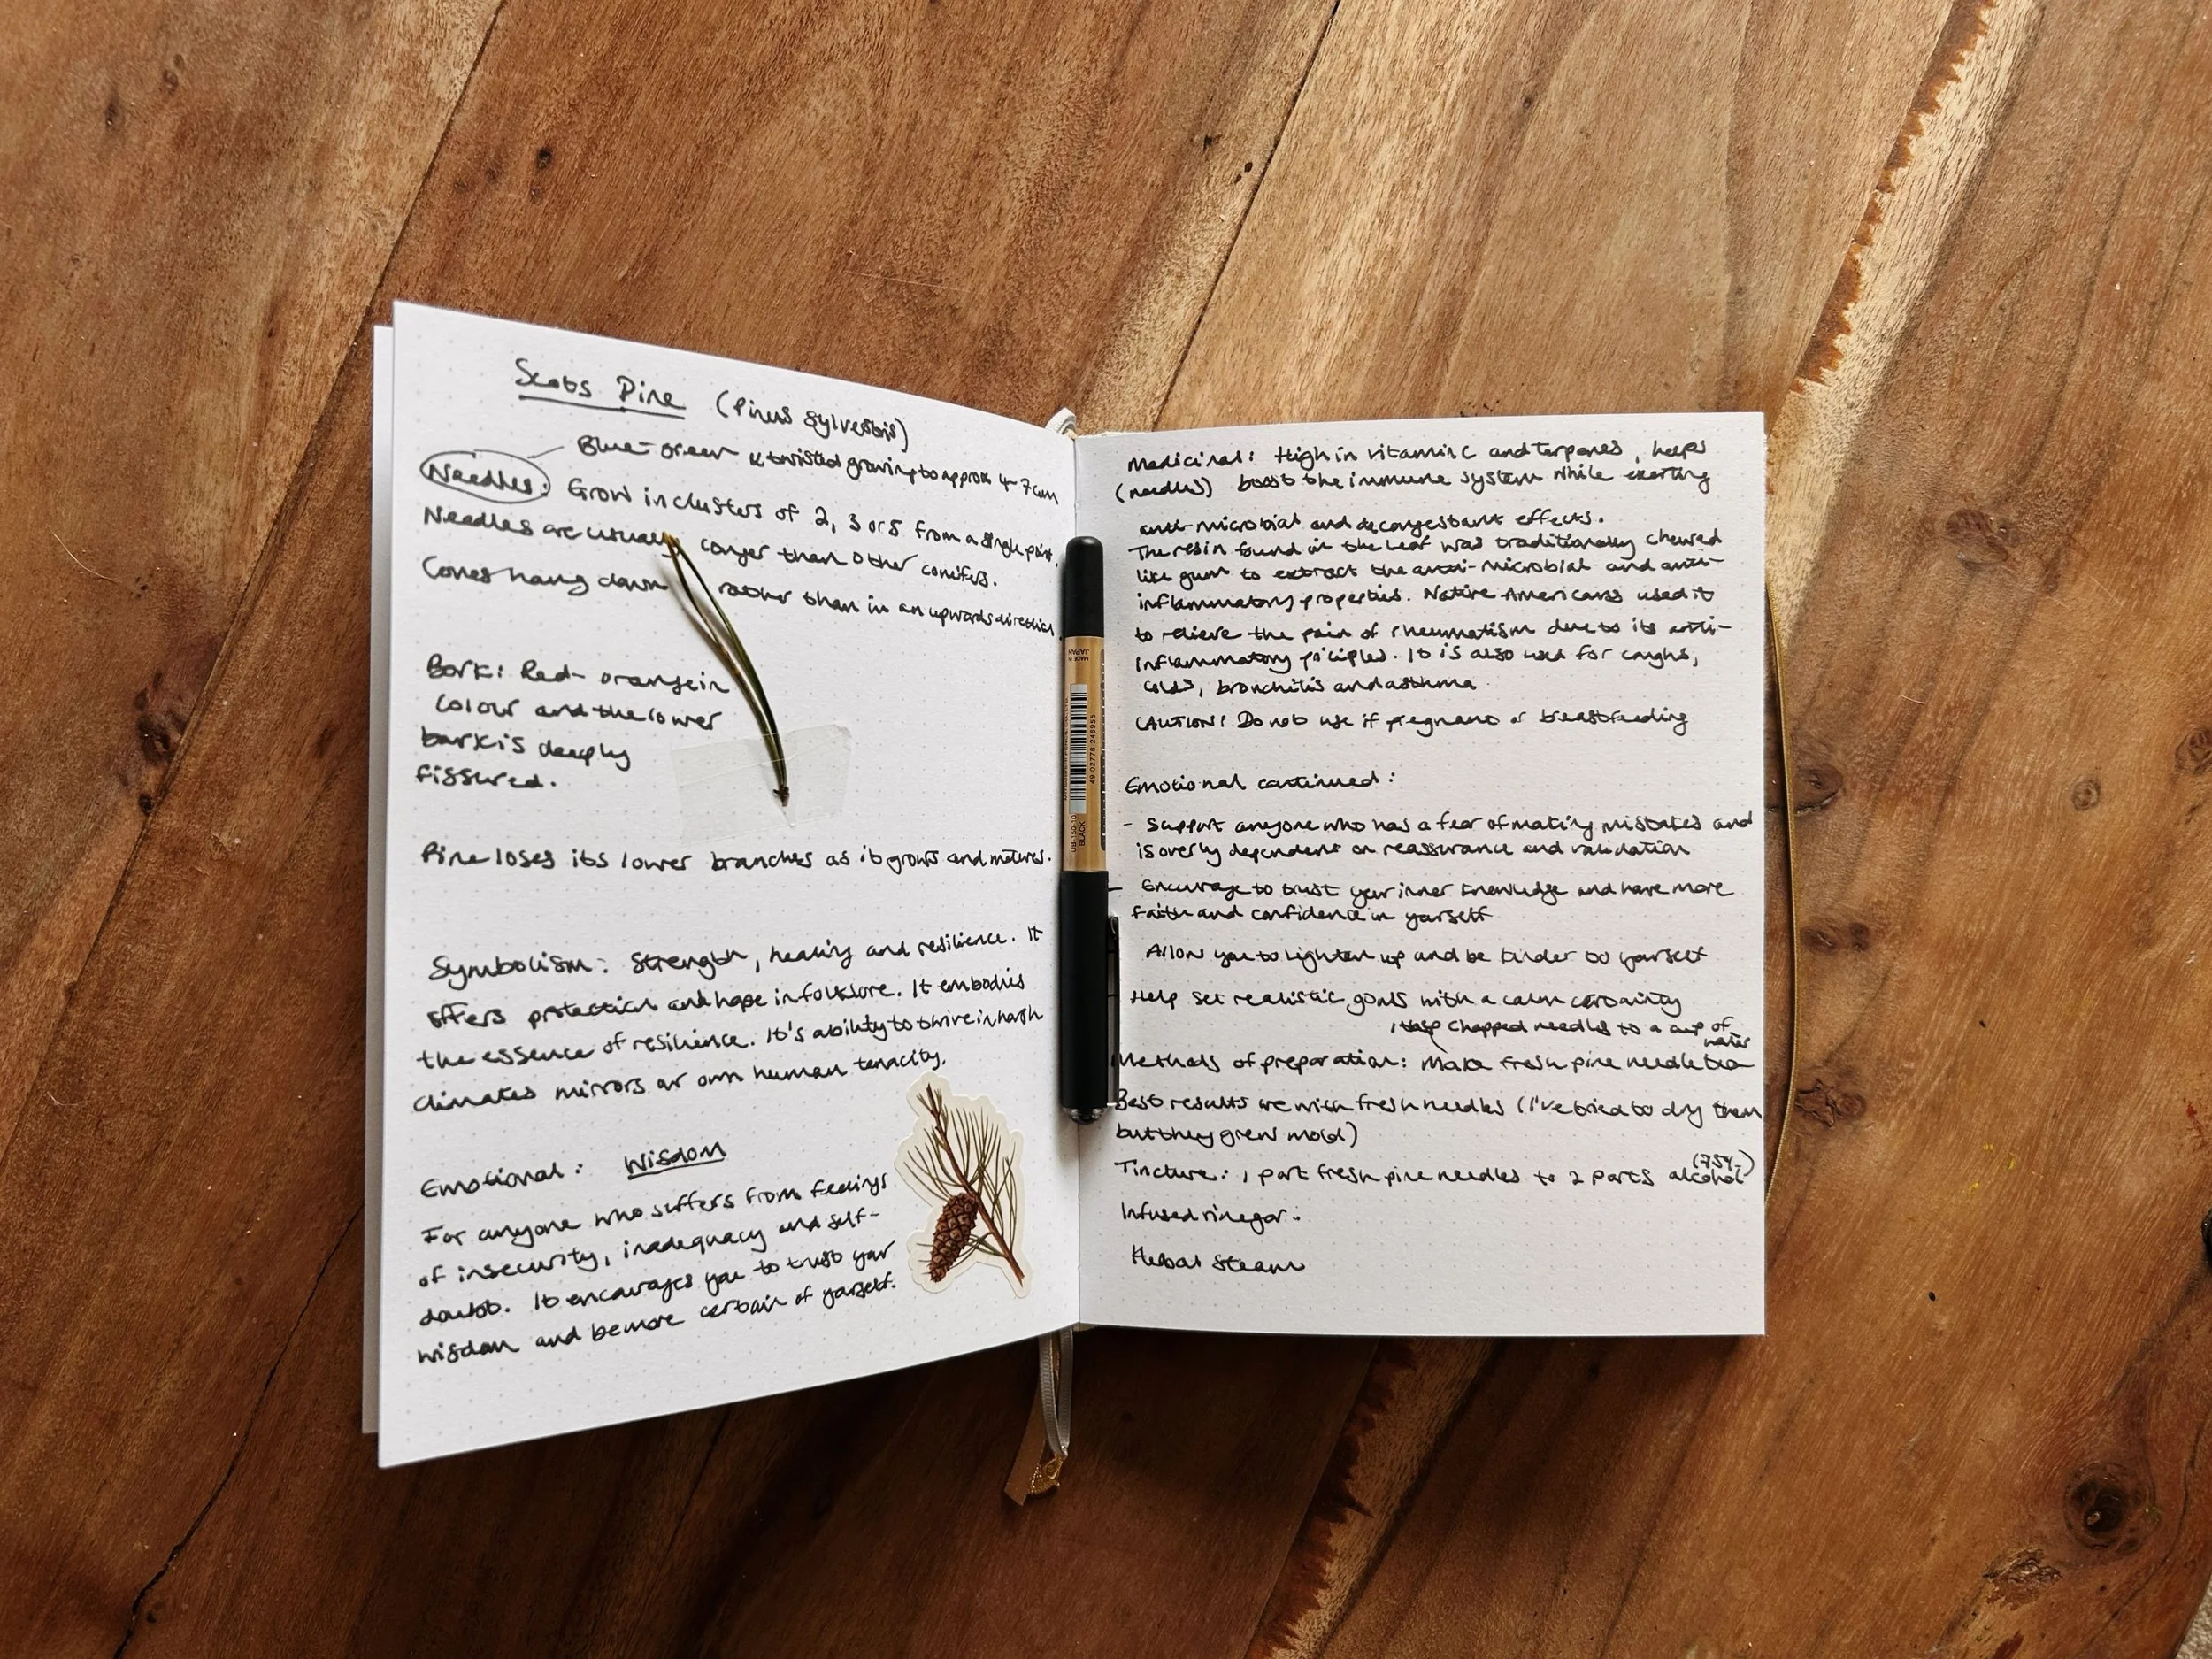 Scots Pine (Pinus sylvestris)
Blue-green & twisted growing to approx 4-7cm
Needles: Grow in clusters of 2, 3 or 5 from a single point.
Needles are usually longer than other conifers.
Cones hang down rather than in an upwards direction.
Bark: Red-orange in
colour and the lower
bark is deeply
fissured.
Pine loses its lower branches as it grows and matures.
Symbolism: Strength, healing and resilience. It
offers protection and hope in folklore. It embodies
the essence of resilience. It's ability to thrive in harsh
climates mirrors our own human tenacity.
Emotional: Wisdom
For anyone who suffers from feelings
of insecurity, inadequacy and self-
doubt. It encourages you to trust your
wisdom and be more certain of yourself.
MADE IN
JAPAN
49 02778 246955
UB-150-10
BLACK
Medicinal: High in vitamin C and terpenes, helps
(needles) boost the immune system while exerting
anti-microbial and decongestant effects.
The resin found in the leaf was traditionally chewed
like gum to extract the anti-microbial and anti-
inflammatory properties. Native Americans used it
to relieve the pain of rheumatism due to its anti-
inflammatory priciples. It is also used for coughs,
colds, bronchitis and asthma.
CAUTION! Do not use if pregnant or breastfeeding
Emotional continued:
- Support anyone who has a fear of making mistakes and
is overly dependent on reassurance and validation
- Encourage to trust your inner knowledge and have more
faith and confidence in yourself
Allow you to lighten up and be kinder to yourself
Help set realistic goals with a calm certainty
1 tbsp chopped needles to a cup of
water
Methods of preparation: Make fresh pine needle tea
Best results are with fresh needles (I've tried to dry them
but they grew mold)
(75%)
Tincture: 1 part fresh pine needles to 2 parts alcohol
Infused vinegar:
Herbal Steam